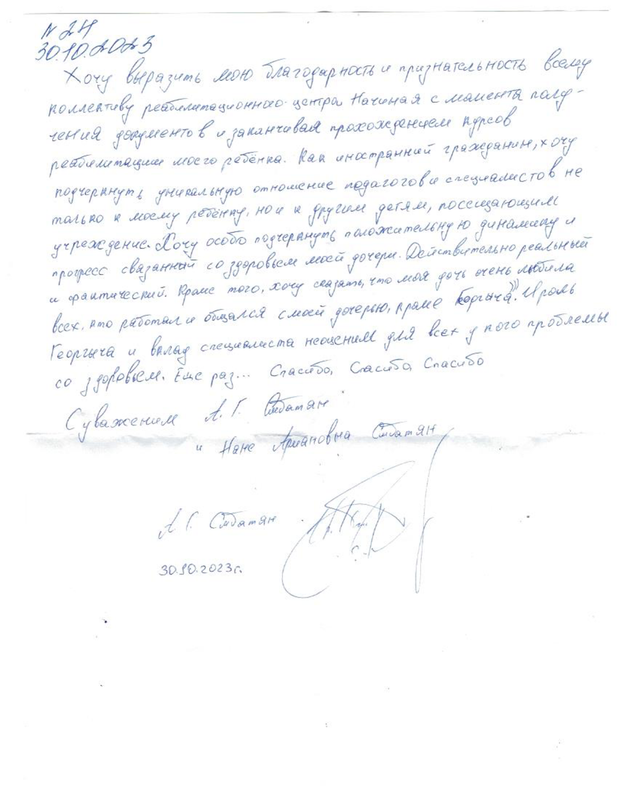 N 24
30.10.2023
Хочу выразить мою благодарность и признательность всему
коллективу реабилитационного центра Начиная с мамента полу-
чения документов и заканчивая прохождением курсов
реабилитации моего ребёнка. Как иностранний гражданин, хочу
подчеркнуть уникальную отношение педагогов и специалистов не
только к моему ребёнку, но и к другим детям, посещающим
учреждение. Хочу особо подчеркнуть положительную динамику и
прогресс связанный со здоровьем моей дочери. Действительно реальный
и фактический. Кроме того, хочу сказать, что моя дочь очень любила
всех, кто работал и общался с моей дочерью, кроме
Георгыча и вклад специалиста неоценим для всех у кого проблемы
со здоровьем. Еще раз... Спасибо, Спасибо, Спасибо
С уважением А. Г. Смбатян
и Нане Армановна Смбатян
А. Г. Смбатян
30.10.2023г.